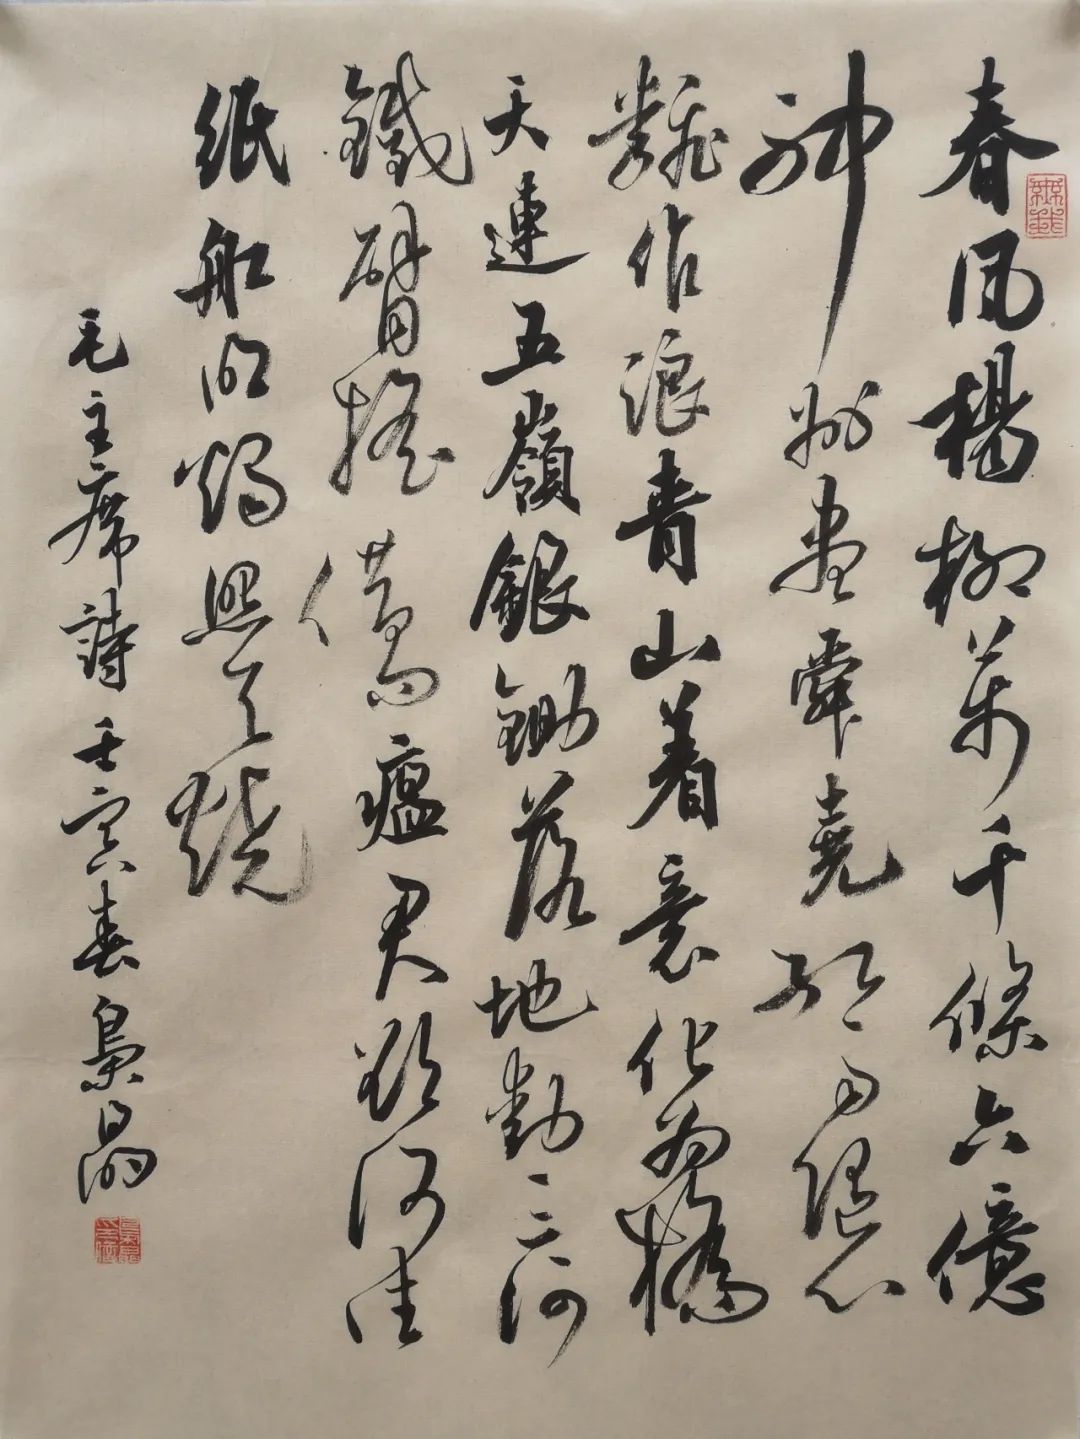 春風楊柳萬千條六億
神州盡舜堯紅雨隨心
翻作浪青山着意化為橋
天連五嶺銀鋤落地動三河
鐵臂搖借問瘟君欲何往
紙船明燭照天燒
毛主席詩壬寅春
無我